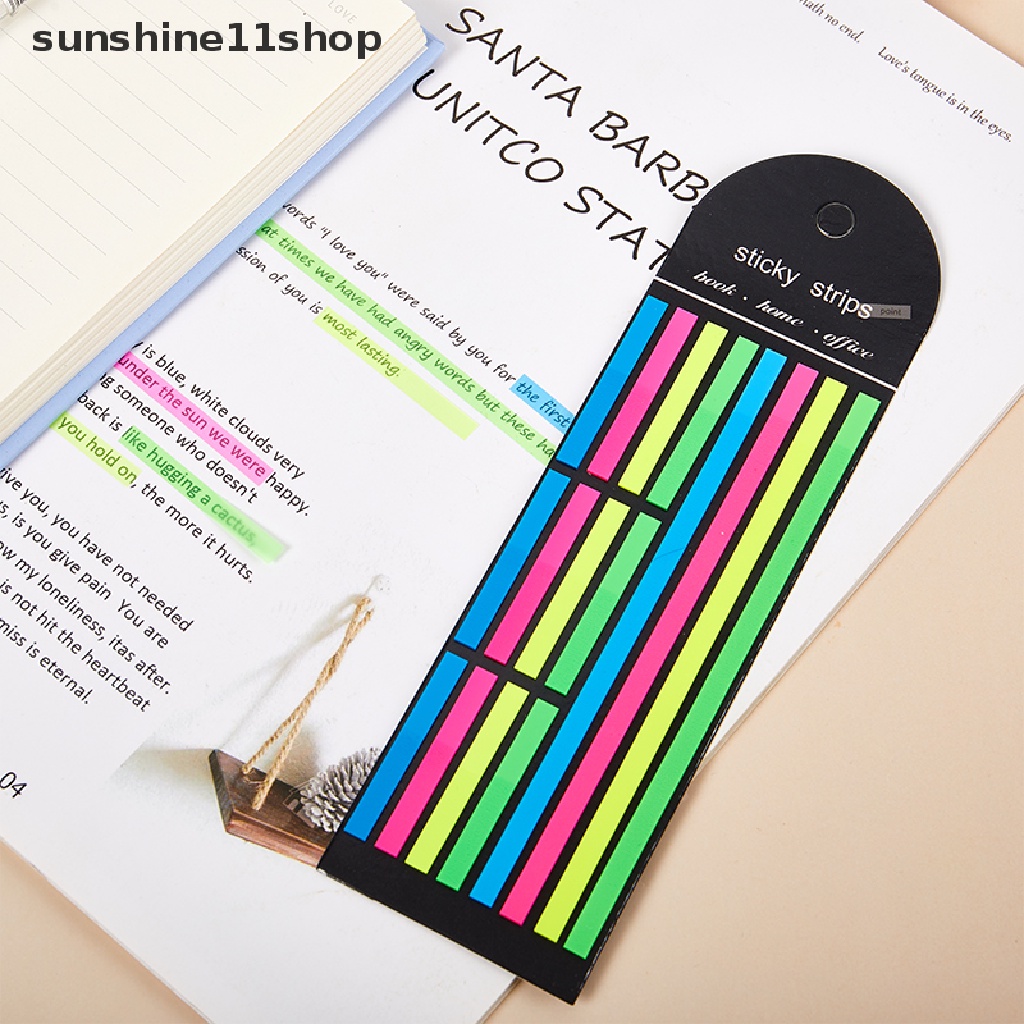 sunshine11shop
LOVE
ath no end.
Love's tongue is in the eyes.
SANTA BARB
UNITCO STAT
sticky strips
point
book · home · office
words "I love you" were said by you for the first
at times we have had angry words but these ha
ssion of you is most lasting.
is blue, white clouds very
under the sun we were happy.
ng someone who doesn't
back is like hugging a cactus,
you hold on, the more it hurts.
ive you, you have not needed
s, is you give pain You are
ow my loneliness, itas after.
is not hit the heartbeat
miss is eternal.
04